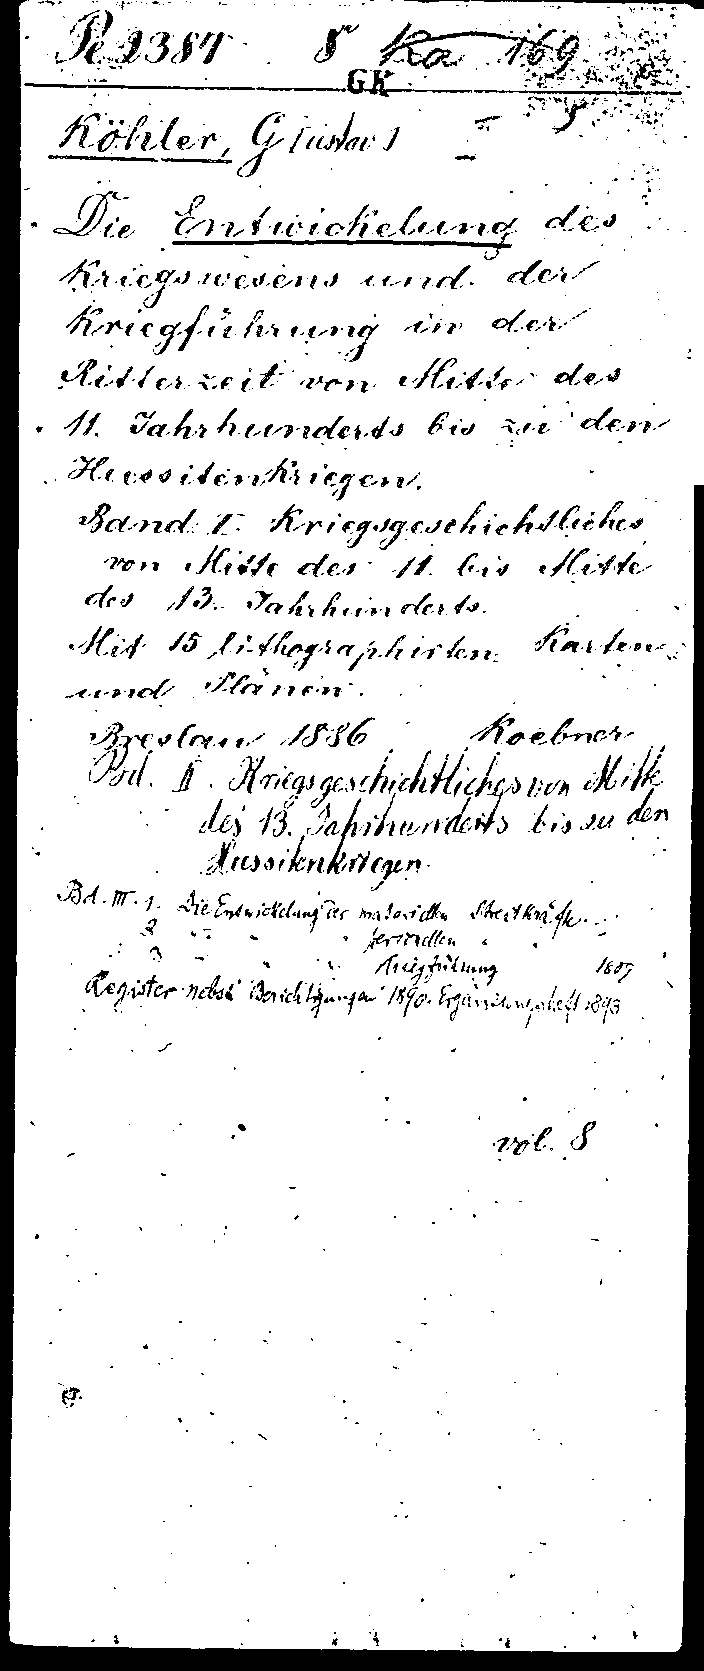 Pe 2387 8° Ka 169
GK 5
Köhler, G[ustav]
Die Entwickelung des
Kriegswesens und der
Kriegführung in der
Ritterzeit von Mitte des
11. Jahrhunderts bis zu den
Hussitenkriegen.
Band I. Kriegsgeschichtliches
von Mitte des 11. bis Mitte
des 13. Jahrhunderts.
Mit 15 lithographirten Karten
und Plänen.
Breslau 1886 Koebner
Bd. II. Kriegsgeschichtliches von Mitte
des 13. Jahrhunderts bis zu den
Hussitenkriegen.
Bd. III. 1. Die Entwickelung der materiellen Streitkräfte
2 " " " personellen "
3 " " " Kriegführung 1889
Register nebst Berichtigungen 1890. Ergänzungsheft 1893
vol. 8